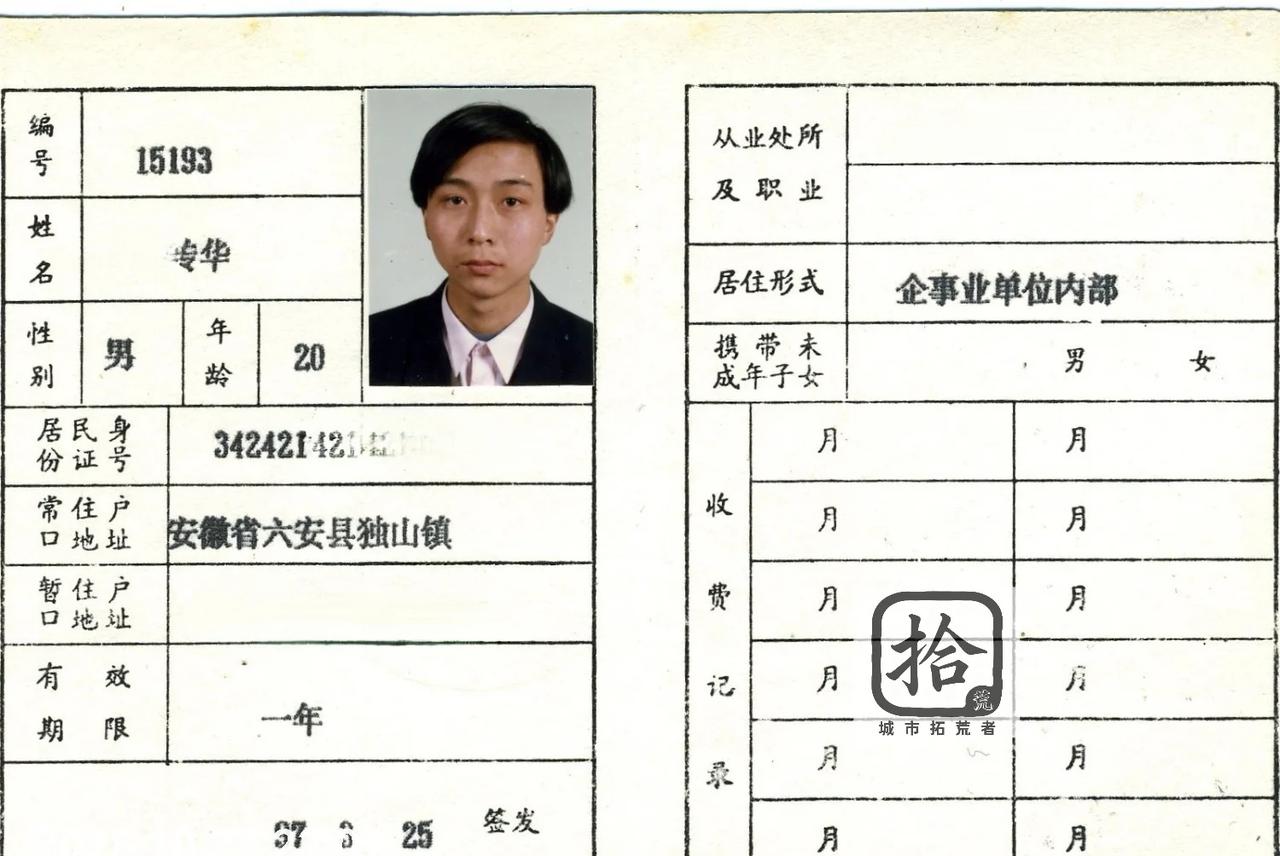 编号 15193
姓名 专华
性别 男 年龄 20
居民身份证号 342421421
常住户口地址 安徽省六安县独山镇
暂住户口地址
有效期限 一年
25 签发
从业处所及职业
居住形式 企事业单位内部
携带未成年子女 男 女
收费记录
月 月
月 月
月 月
月 月
月 月
月 月
拾荒
城市拓荒者